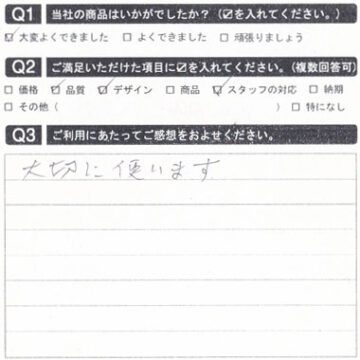 Q1 当社の商品はいかがでしたか？（☑を入れてください。）
☑ 大変よくできました □ よくできました □ 頑張りましょう
Q2 ご満足いただけた項目に☑を入れてください。（複数回答可）
□ 価格 ☑ 品質 ☑ デザイン □ 商品 ☑ スタッフの対応 □ 納期
□ その他（ ） □ 特になし
Q3 ご利用にあたってご感想をおよせください。
大切に使います